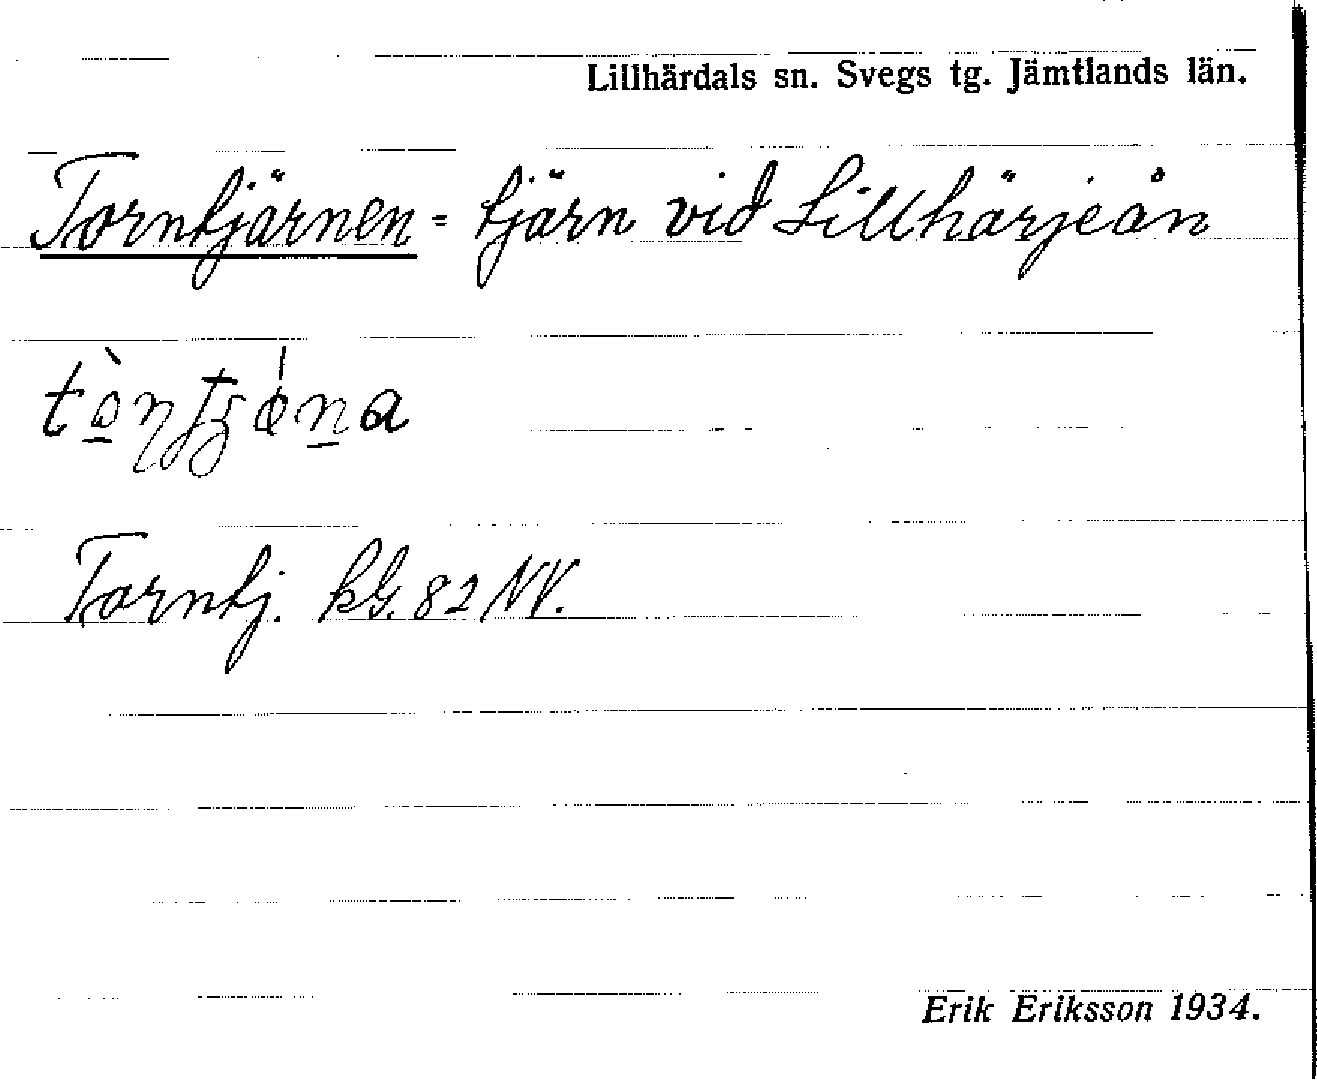 Lillhärdals sn. Svegs tg. Jämtlands län.
Torntjärnen = tjärn vid Lillhärjeån
Torntj. kG. 82 NV.
Erik Eriksson 1934.